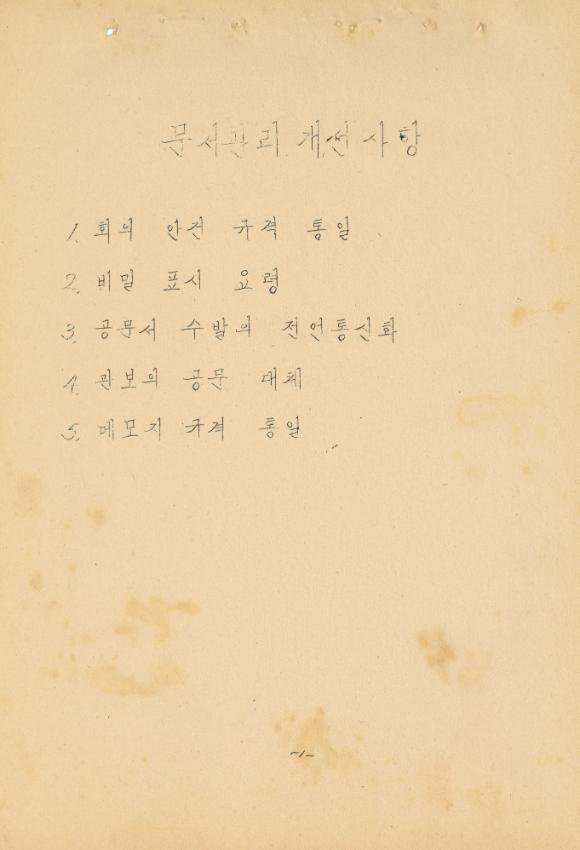 문서관리 개선 사항
1. 회의 안건 규격 통일
2. 비밀 표시 요령
3. 공문서 수발의 전언통신화
4. 관보의 공문 대체
5. 메모지 규격 통일
-1-